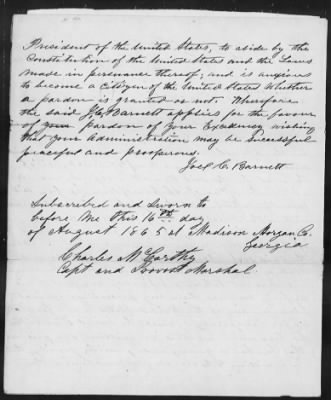 President of the United States, to abide by the
Constitution of the United States and the Laws
made in persuance thereof; and is anxious
to become a Citizen of the United States Whether
a pardon is granted or not. Wherefore
the said J.C. Barnett applies for the favour
of your pardon of Your Excellency wishing
that your Administration may be Successful
peaceful and prosperous.
Joel C. Barnett
Subscribed and Sworn to
before me this 16th day
of August 1865 at Madison Morgan Co.
Georgia
Charles McCarthy
Capt and Provost Marshal